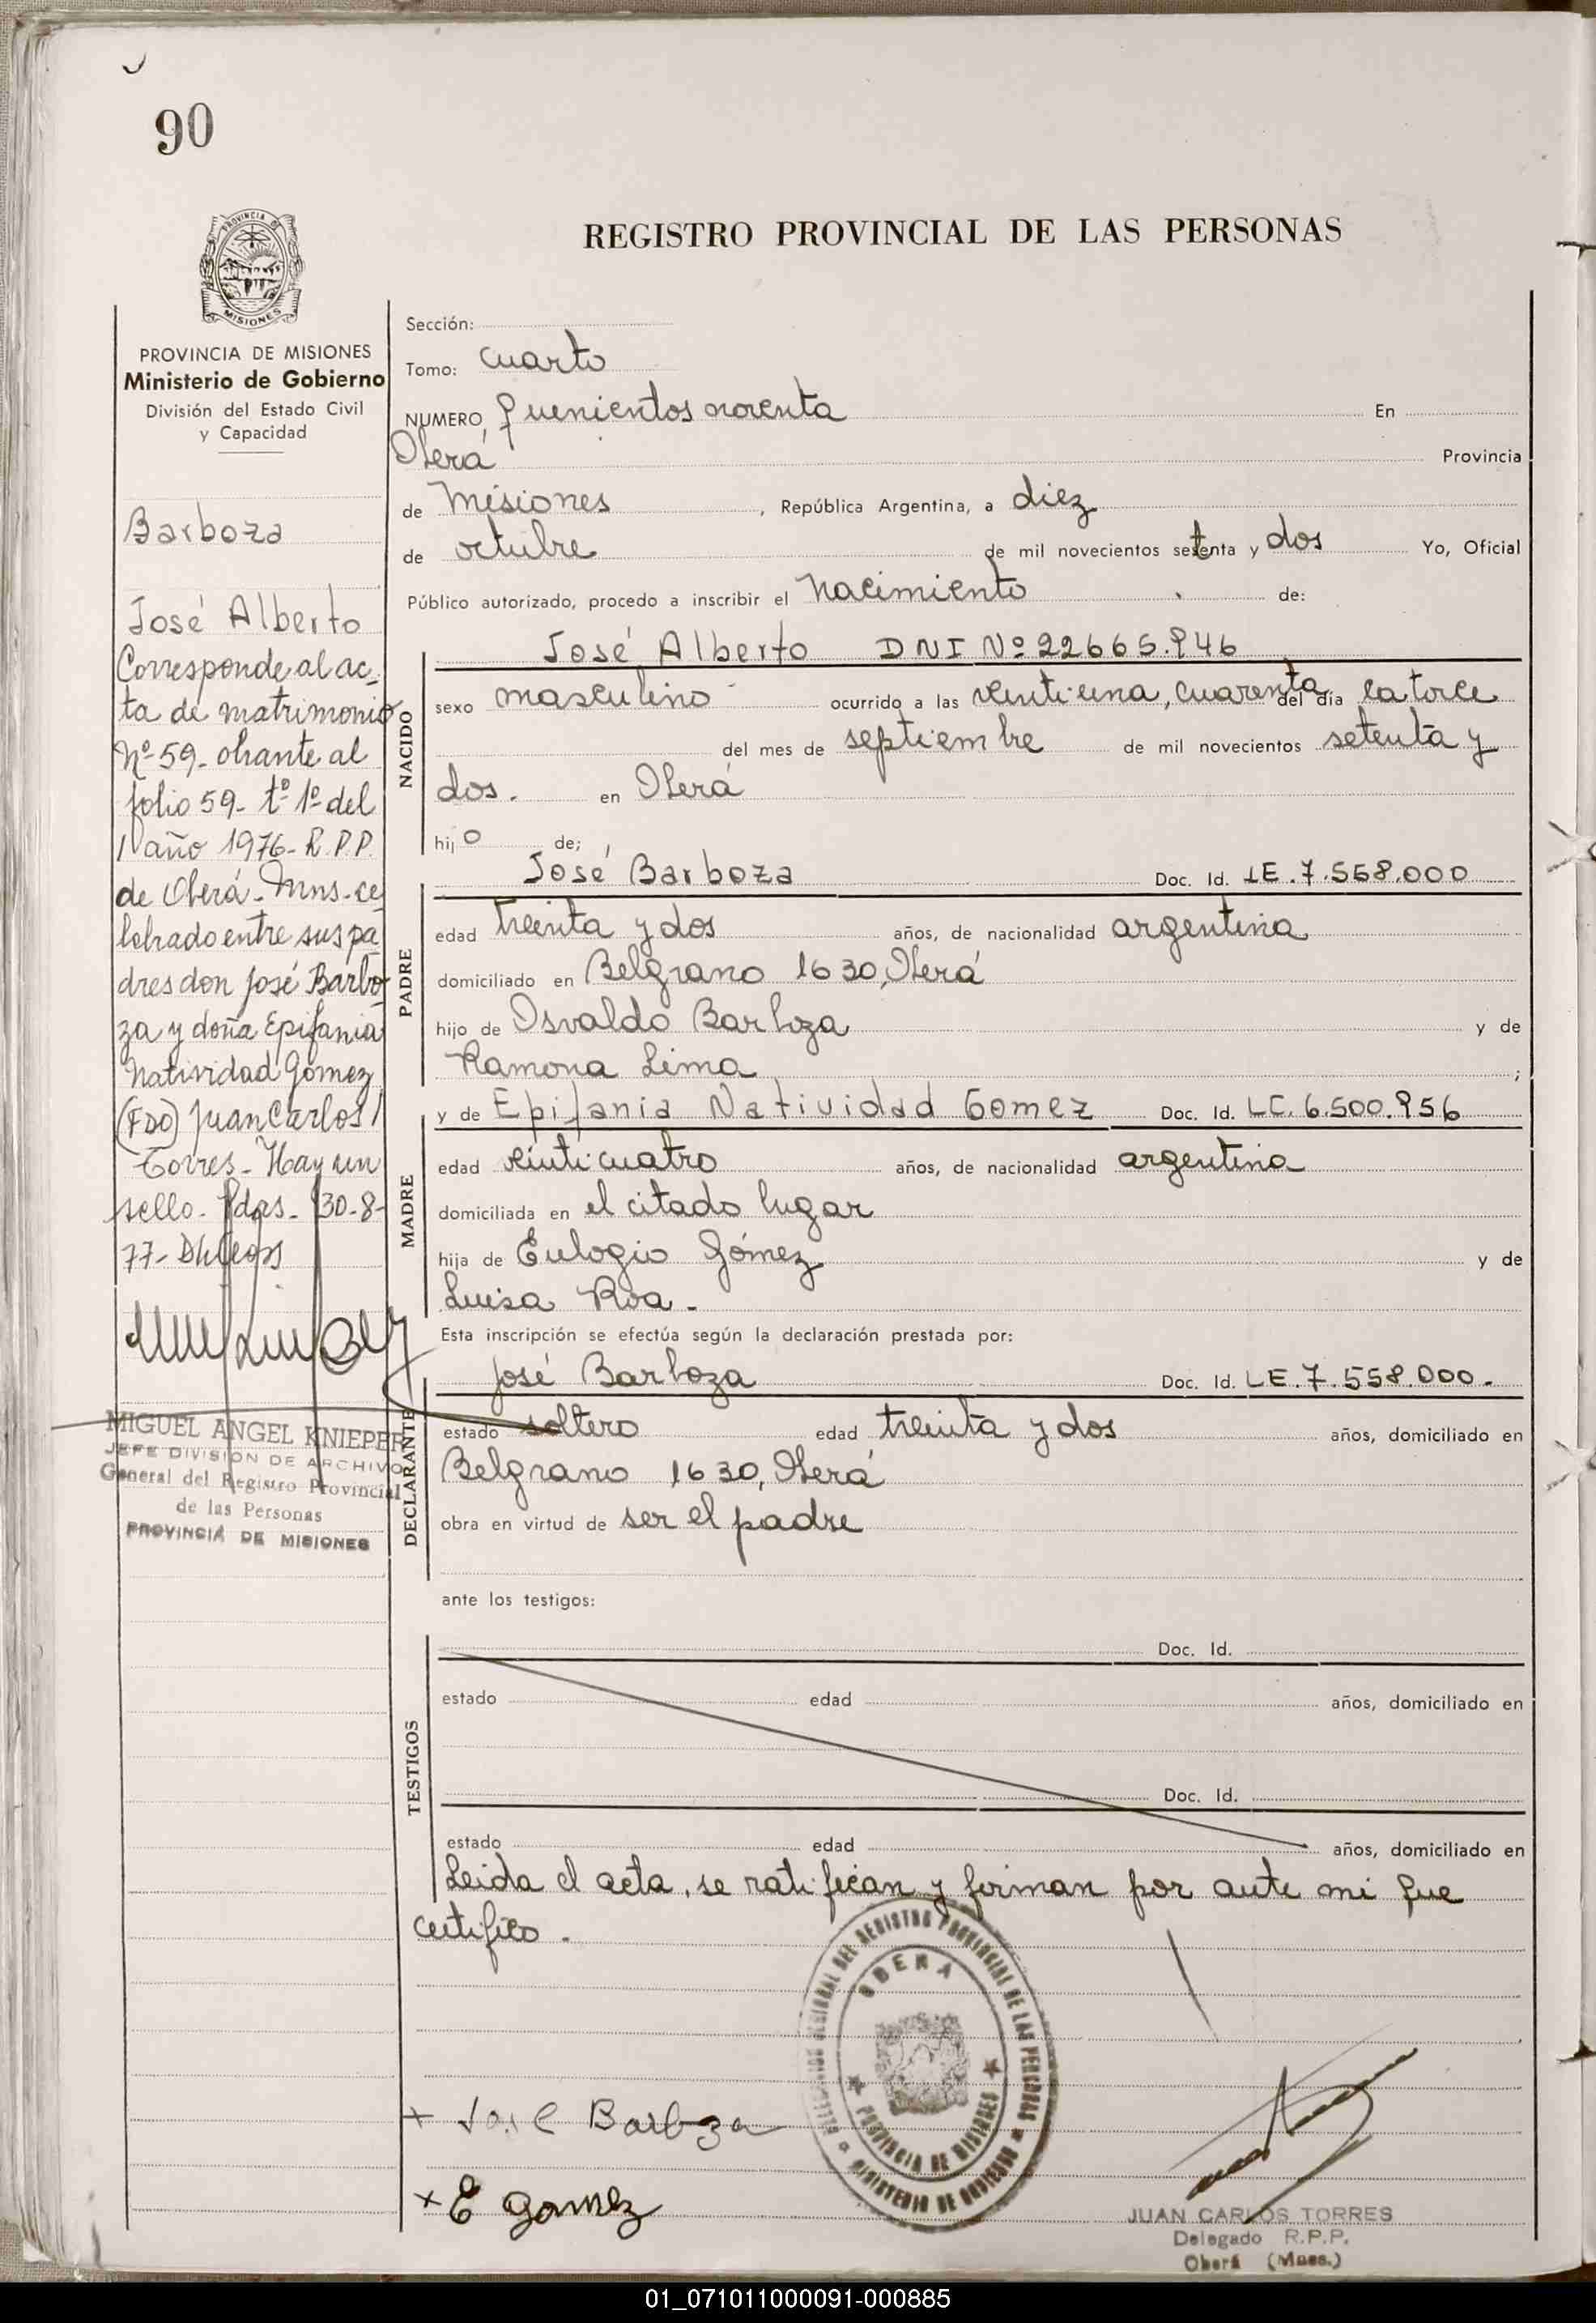 90
PROVINCIA DE
MISIONES
REGISTRO PROVINCIAL DE LAS PERSONAS
PROVINCIA DE MISIONES
Ministerio de Gobierno
División del Estado Civil
y Capacidad
Barboza
José Alberto
Corresponde al ac-
ta de matrimonio
Nº 59- obrante al
folio 59- tº 1º del
año 1976- R.P.P.
de Oberá- Mns- ce
lebrado entre sus pa
dres don José Barbo
za y doña Epifania
Natividad Gómez
(FDO) Juan Carlos
Torres- Hay un
sello- Pdas- 30-8-
77-
MIGUEL ANGEL KNIEPER
JEFE DIVISIÓN DE ARCHIVO
General del Registro Provincial
de las Personas
PROVINCIA DE MISIONES
Sección:
Tomo: cuarto
NUMERO, quenientos noventa En
Oberá Provincia
de Misiones , República Argentina, a diez
de octubre de mil novecientos setenta y dos Yo, Oficial
Público autorizado, procedo a inscribir el nacimiento de:
José Alberto DNI Nº 22665.946
NACIDO
sexo masculino ocurrido a las veintiuna, cuarenta del día catorce
del mes de septiembre de mil novecientos setenta y
dos. en Oberá
hijo de;
José Barboza Doc. Id. LE.7.558.000
PADRE
edad treinta y dos años, de nacionalidad argentina
domiciliado en Belgrano 1630, Oberá
hijo de Osvaldo Barboza y de
Ramona Lima ;
y de Epifania Natividad Gomez Doc. Id. LC. 6.500.956
MADRE
edad veinticuatro años, de nacionalidad argentina
domiciliada en el citado lugar
hija de Eulogio Gómez y de
Luisa Roa -
Esta inscripción se efectúa según la declaración prestada por:
José Barboza Doc. Id. LE.7.558.000-
DECLARANTE
estado soltero edad treinta y dos años, domiciliado en
Belgrano 1630, Oberá
obra en virtud de ser el padre
ante los testigos:
Doc. Id.
TESTIGOS
estado edad años, domiciliado en
Doc. Id.
estado edad años, domiciliado en
Leida el acta, se ratifican y firman por ante mi que
certifico -
DELEGACION REGIONAL DEL REGISTRO PROVINCIAL DE LAS PERSONAS
OBERA
PROVINCIA DE MISIONES
MINISTERIO DE GOBIERNO
+ José Barboza
+ E Gomez
JUAN CARLOS TORRES
Delegado R.P.P.
Oberá (Mnes.)
01_071011000091-000885